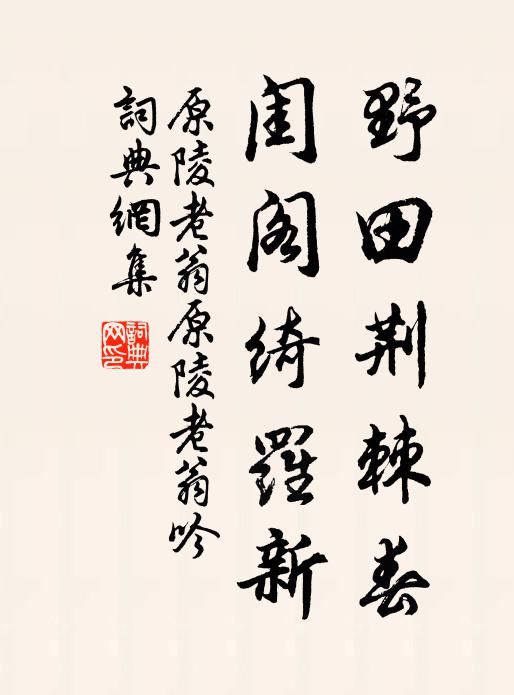 野田荆棘春
閨閣綺羅新
原陵老翁原陵老翁吟
詞典網集
詞典網印